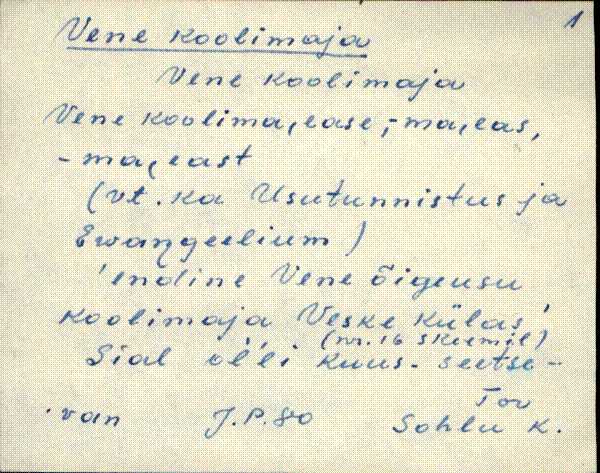 1
Vene koolimaja
Vene koolimaja
Vene koolima,ease, -ma,eas,
-ma,east
(vt. ka Usutunnistus ja
Ewangeelium)
'endine Vene õigeusu
koolimaja Veske külas'
(nr. 16 skeemil)
Sial ol'l'i kuus-seetse-
van J.P.80 Tor
Sohlu K.